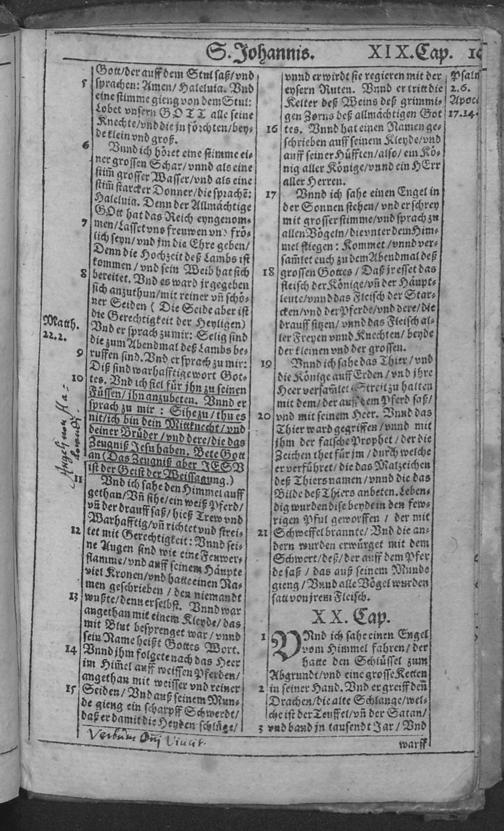 S. Johannis. XIX. Cap.
Gott/der auff dem Stul saß/vnd
5 sprachen: Amen/Haleluia. Vnd
eine stimme gieng von dem Stul:
Lobet vnsern GOTT alle seine
Knechte/vnd die jn förchten/bey-
de klein vnd groß.
6 Vnnd ich höret eine stimme ei-
ner grossen Schar/vnnd als eine
stim̃ grosser Wasser/vnd als eine
stim̃ starcker Donner/die sprachẽ:
Haleluia. Denn der Allmächtige
GOtt hat das Reich eyngenom-
7 men/Lasset vns freuwen vñ frö-
lich seyn/vnd jm die Ehre geben/
Denn die Hochzeit deß Lambs ist
kommen/vnd sein Weib hat sich
8 bereitet. Vnd es ward jr gegeben
sich anzuthun/mit reiner vñ schö-
ner Seiden (Die Seide aber ist
die Gerechtigkeit der Heyligen)
Matth.
22.2.
Vnd er sprach zu mir: Selig sind
9 die zum Abendmal deß Lambs be-
ruffen sind. Vnd er sprach zu mir:
Diß sind warhafftige wort Got-
10 tes. Vnd ich fiel für jhn zu seinen
Füssen/jhn anzubeten. Vnnd er
sprach zu mir: Sihe zu/thu es
nit/ich bin dein Mitknecht/vnd
deiner Brüder/vnd dere/die das
Zeugniß Jesu haben. Bete Gott
an (Das Zeugniß aber JESV
ist der Geist der Weissagung.)
11 Vnd ich sahe den Himmel auff
gethan/Vñ sihe/ein weiß Pferd/
vñ der drauff saß/hieß Trew vnd
Warhafftig/vñ richtet vnd strei-
12 tet mit Gerechtigkeit: Vnnd sei-
ne Augen sind wie eine Feuwer-
flamme/vnd auff seinem Häupte
viel Kronen/vnd hatte einen Na-
men geschrieben/den niemandt
13 wußte/denn er selbst. Vnnd war
angethan mit einem Kleyde/das
mit Blut besprenget war/vnnd
sein Name heißt Gottes Wort.
14 Vnnd jhm folgete nach das Heer
im Him̃el auff weissen Pferden/
angethan mit weisser vnd reiner
15 Seiden/Vnd auß seinem Mun-
de gieng ein scharpff Schwerdt/
daß er damit die Heyden schlüge/
vnnd er wirdt sie regieren mit der
eysern Ruten. Vnnd er tritt die
Kelter deß Weins deß grimmi-
gen Zorns deß allmächtigen Got
16 tes. Vnnd hat einen Namen ge-
schrieben auff seinem Kleyde/vnd
auff seiner Hüfften/also/ein Kö-
nig aller Könige/vnnd ein HErr
aller Herren.
Psalm
2.6.
Apoc.
17.14.
17 Vnnd ich sahe einen Engel in
der Sonnen stehen/vnd er schrey
mit grosser stimme/vnd sprach zu
allen Vögeln/die vnter dem Him-
mel fliegen: Kommet/vnnd ver-
samlet euch zu dem Abendmal deß
18 grossen Gottes/Daß jr esset das
fleisch der Könige/vñ der Häupt-
leute/vnnd das Fleisch der Star-
cken/vnd der Pferde/vnd dere/die
drauff sitzen/vnnd das Fleisch al-
ler Freyen vnnd Knechten/beyde
der kleinen vnd der grossen.
19 Vnnd ich sahe das Thier/vnd
die Könige auff Erden/vnd jhre
Heer versam̃let Streit zu halten
mit dem/der auff dem Pferd saß/
20 vnd mit seinem Heer. Vnnd das
Thier ward gegriffen/vnnd mit
jhm der falsche Prophet/der die
Zeichen thet für jm/durch welche
er verführet/die das Malzeichen
deß Thiers namen/vnnd die das
Bilde deß Thiers anbeten. Leben-
dig wurden dise beyde in den few-
rigen Pful geworffen/der mit
21 Schweffel brannte/Vnd die an-
dern wurden erwürget mit dem
Schwert/deß/der auff dem Pfer
de saß/das auß seinem Munde
gieng/Vnnd alle Vögel wurden
satt von jrem Fleisch.
XX. Cap.
1 VNnd ich sahe einen Engel
vom Himmel fahren/der
hatte den Schlüssel zum
Abgrundt/vnd eine grosse Ketten
2 in seiner Hand. Vnd er greiff den̄
Drachen/die alte Schlange/wel-
che ist der Teuffel/vñ der Satan/
3 vnd band jn tausendt Jar/Vnd
warff